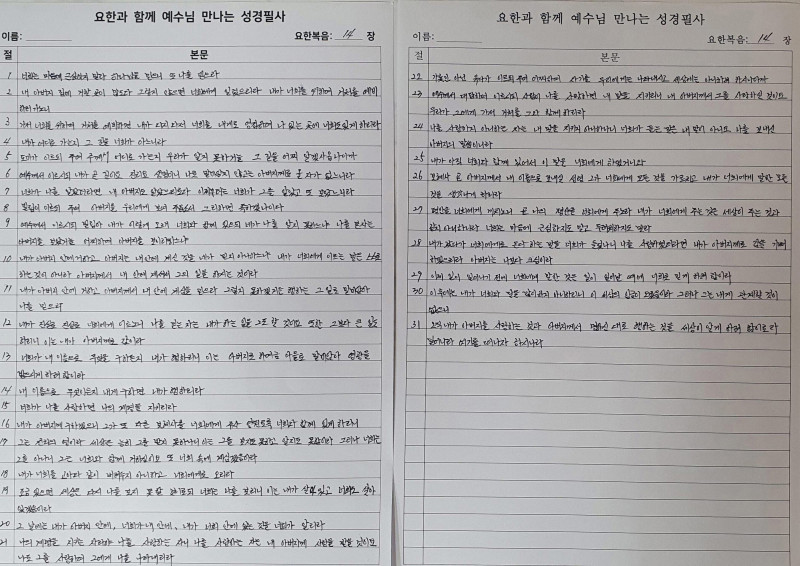 요한과 함께 예수님 만나는 성경필사
이름:
요한복음: 14 장
절 본문
1 너희는 마음에 근심하지 말라 하나님을 믿으니 또 나를 믿으라
2 내 아버지 집에 거할 곳이 많도다 그렇지 않으면 너희에게 일렀으리라 내가 너희를 위하여 거처를 예비
하러 가노니
3 가서 너희를 위하여 거처를 예비하면 내가 다시 와서 너희를 내게로 영접하여 나 있는 곳에 너희도 있게 하리라
4 내가 어디로 가는지 그 길을 너희가 아느니라
5 도마가 이르되 주여 주께서 어디로 가는지 우리가 알지 못하거늘 그 길을 어찌 알겠사옵나이까
6 예수께서 이르시되 내가 곧 길이요 진리요 생명이니 나로 말미암지 않고는 아버지께로 올 자가 없느니라
7 너희가 나를 알았더라면 내 아버지도 알았으리로다 이제부터는 너희가 그를 알았고 또 보았느니라
8 빌립이 이르되 주여 아버지를 우리에게 보여 주옵소서 그리하면 족하겠나이다
9 예수께서 이르시되 빌립아 내가 이렇게 오래 너희와 함께 있으되 네가 나를 알지 못하느냐 나를 본 자는
아버지를 보았거늘 어찌하여 아버지를 보이라 하느냐
10 내가 아버지 안에 거하고 아버지는 내 안에 계신 것을 네가 믿지 아니하느냐 내가 너희에게 이르는 말은 스스로
하는 것이 아니라 아버지께서 내 안에 계셔서 그의 일을 하시는 것이라
11 내가 아버지 안에 거하고 아버지께서 내 안에 계심을 믿으라 그렇지 못하겠거든 행하는 그 일로 말미암아
나를 믿으라
12 내가 진실로 진실로 너희에게 이르노니 나를 믿는 자는 내가 하는 일을 그도 할 것이요 또한 그보다 큰 일도
하리니 이는 내가 아버지께로 감이라
13 너희가 내 이름으로 무엇을 구하든지 내가 행하리니 이는 아버지로 하여금 아들로 말미암아 영광을
받으시게 하려 함이라
14 내 이름으로 무엇이든지 내게 구하면 내가 행하리라
15 너희가 나를 사랑하면 나의 계명을 지키리라
16 내가 아버지께 구하겠으니 그가 또 다른 보혜사를 너희에게 주사 영원토록 너희와 함께 있게 하리니
17 그는 진리의 영이라 세상은 능히 그를 받지 못하나니 이는 그를 보지도 못하고 알지도 못함이라 그러나 너희는
그를 아나니 그는 너희와 함께 거하심이요 또 너희 속에 계시겠음이라
18 내가 너희를 고아와 같이 버려두지 아니하고 너희에게로 오리라
19 조금 있으면 세상은 다시 나를 보지 못할 것이로되 너희는 나를 보리니 이는 내가 살아 있고 너희도 살아
있겠음이라
20 그 날에는 내가 아버지 안에, 너희가 내 안에, 내가 너희 안에 있는 것을 너희가 알리라
21 나의 계명을 지키는 자라야 나를 사랑하는 자니 나를 사랑하는 자는 내 아버지께 사랑을 받을 것이요
나도 그를 사랑하여 그에게 나를 나타내리라
요한과 함께 예수님 만나는 성경필사
이름:
요한복음: 14 장
절 본문
22 가룟인 아닌 유다가 이르되 주여 어찌하여 자기를 우리에게는 나타내시고 세상에는 아니하려 하시나이까
23 예수께서 대답하여 이르시되 사람이 나를 사랑하면 내 말을 지키리니 내 아버지께서 그를 사랑하실 것이요
우리가 그에게 가서 거처를 그와 함께 하리라
24 나를 사랑하지 아니하는 자는 내 말을 지키지 아니하나니 너희가 듣는 말은 내 말이 아니요 나를 보내신
아버지의 말씀이니라
25 내가 아직 너희와 함께 있어서 이 말을 너희에게 하였거니와
26 보혜사 곧 아버지께서 내 이름으로 보내실 성령 그가 너희에게 모든 것을 가르치고 내가 너희에게 말한 모든
것을 생각나게 하리라
27 평안을 너희에게 끼치노니 곧 나의 평안을 너희에게 주노라 내가 너희에게 주는 것은 세상이 주는 것과
같지 아니하니라 너희는 마음에 근심하지도 말고 두려워하지도 말라
28 내가 갔다가 너희에게로 온다 하는 말을 너희가 들었나니 나를 사랑하였더라면 내가 아버지께로 감을 기뻐
하였으리라 아버지는 나보다 크심이라
29 이제 일이 일어나기 전에 너희에게 말한 것은 일이 일어날 때에 너희로 믿게 하려 함이라
30 이 후에는 내가 너희와 말을 많이 하지 아니하리니 이 세상의 임금이 오겠음이라 그러나 그는 내게 관계할 것이
없으니
31 오직 내가 아버지를 사랑하는 것과 아버지께서 명하신 대로 행하는 것을 세상이 알게 하려 함이로라
일어나라 여기를 떠나자 하시니라